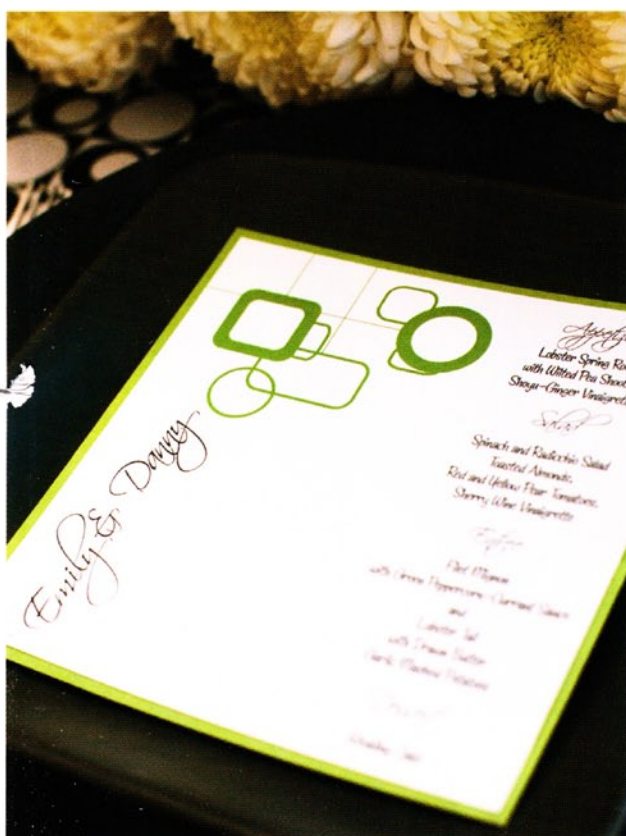 Emily & Danny
Appetiz
Lobster Spring Ro
with Wilted Pea Shoot
Shoyu-Ginger Vinaigrett
Salad
Spinach and Radicchio Salad
Toasted Almonds,
Red and Yellow Pear Tomatoes,
Sherry Wine Vinaigrette
Entree
Filet Mignon
with Green Peppercorn-Currant Sauce
and
Lobster Tail
with Drawn Butter
Garlic Mashed Potatoes